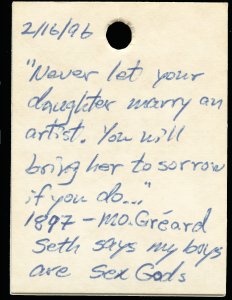 2/16/96
"Never let your
daughter marry an
artist. You will
bring her to sorrow
if you do..."
1897 - MO. Gréard
Seth says my boys
are Sex Gods